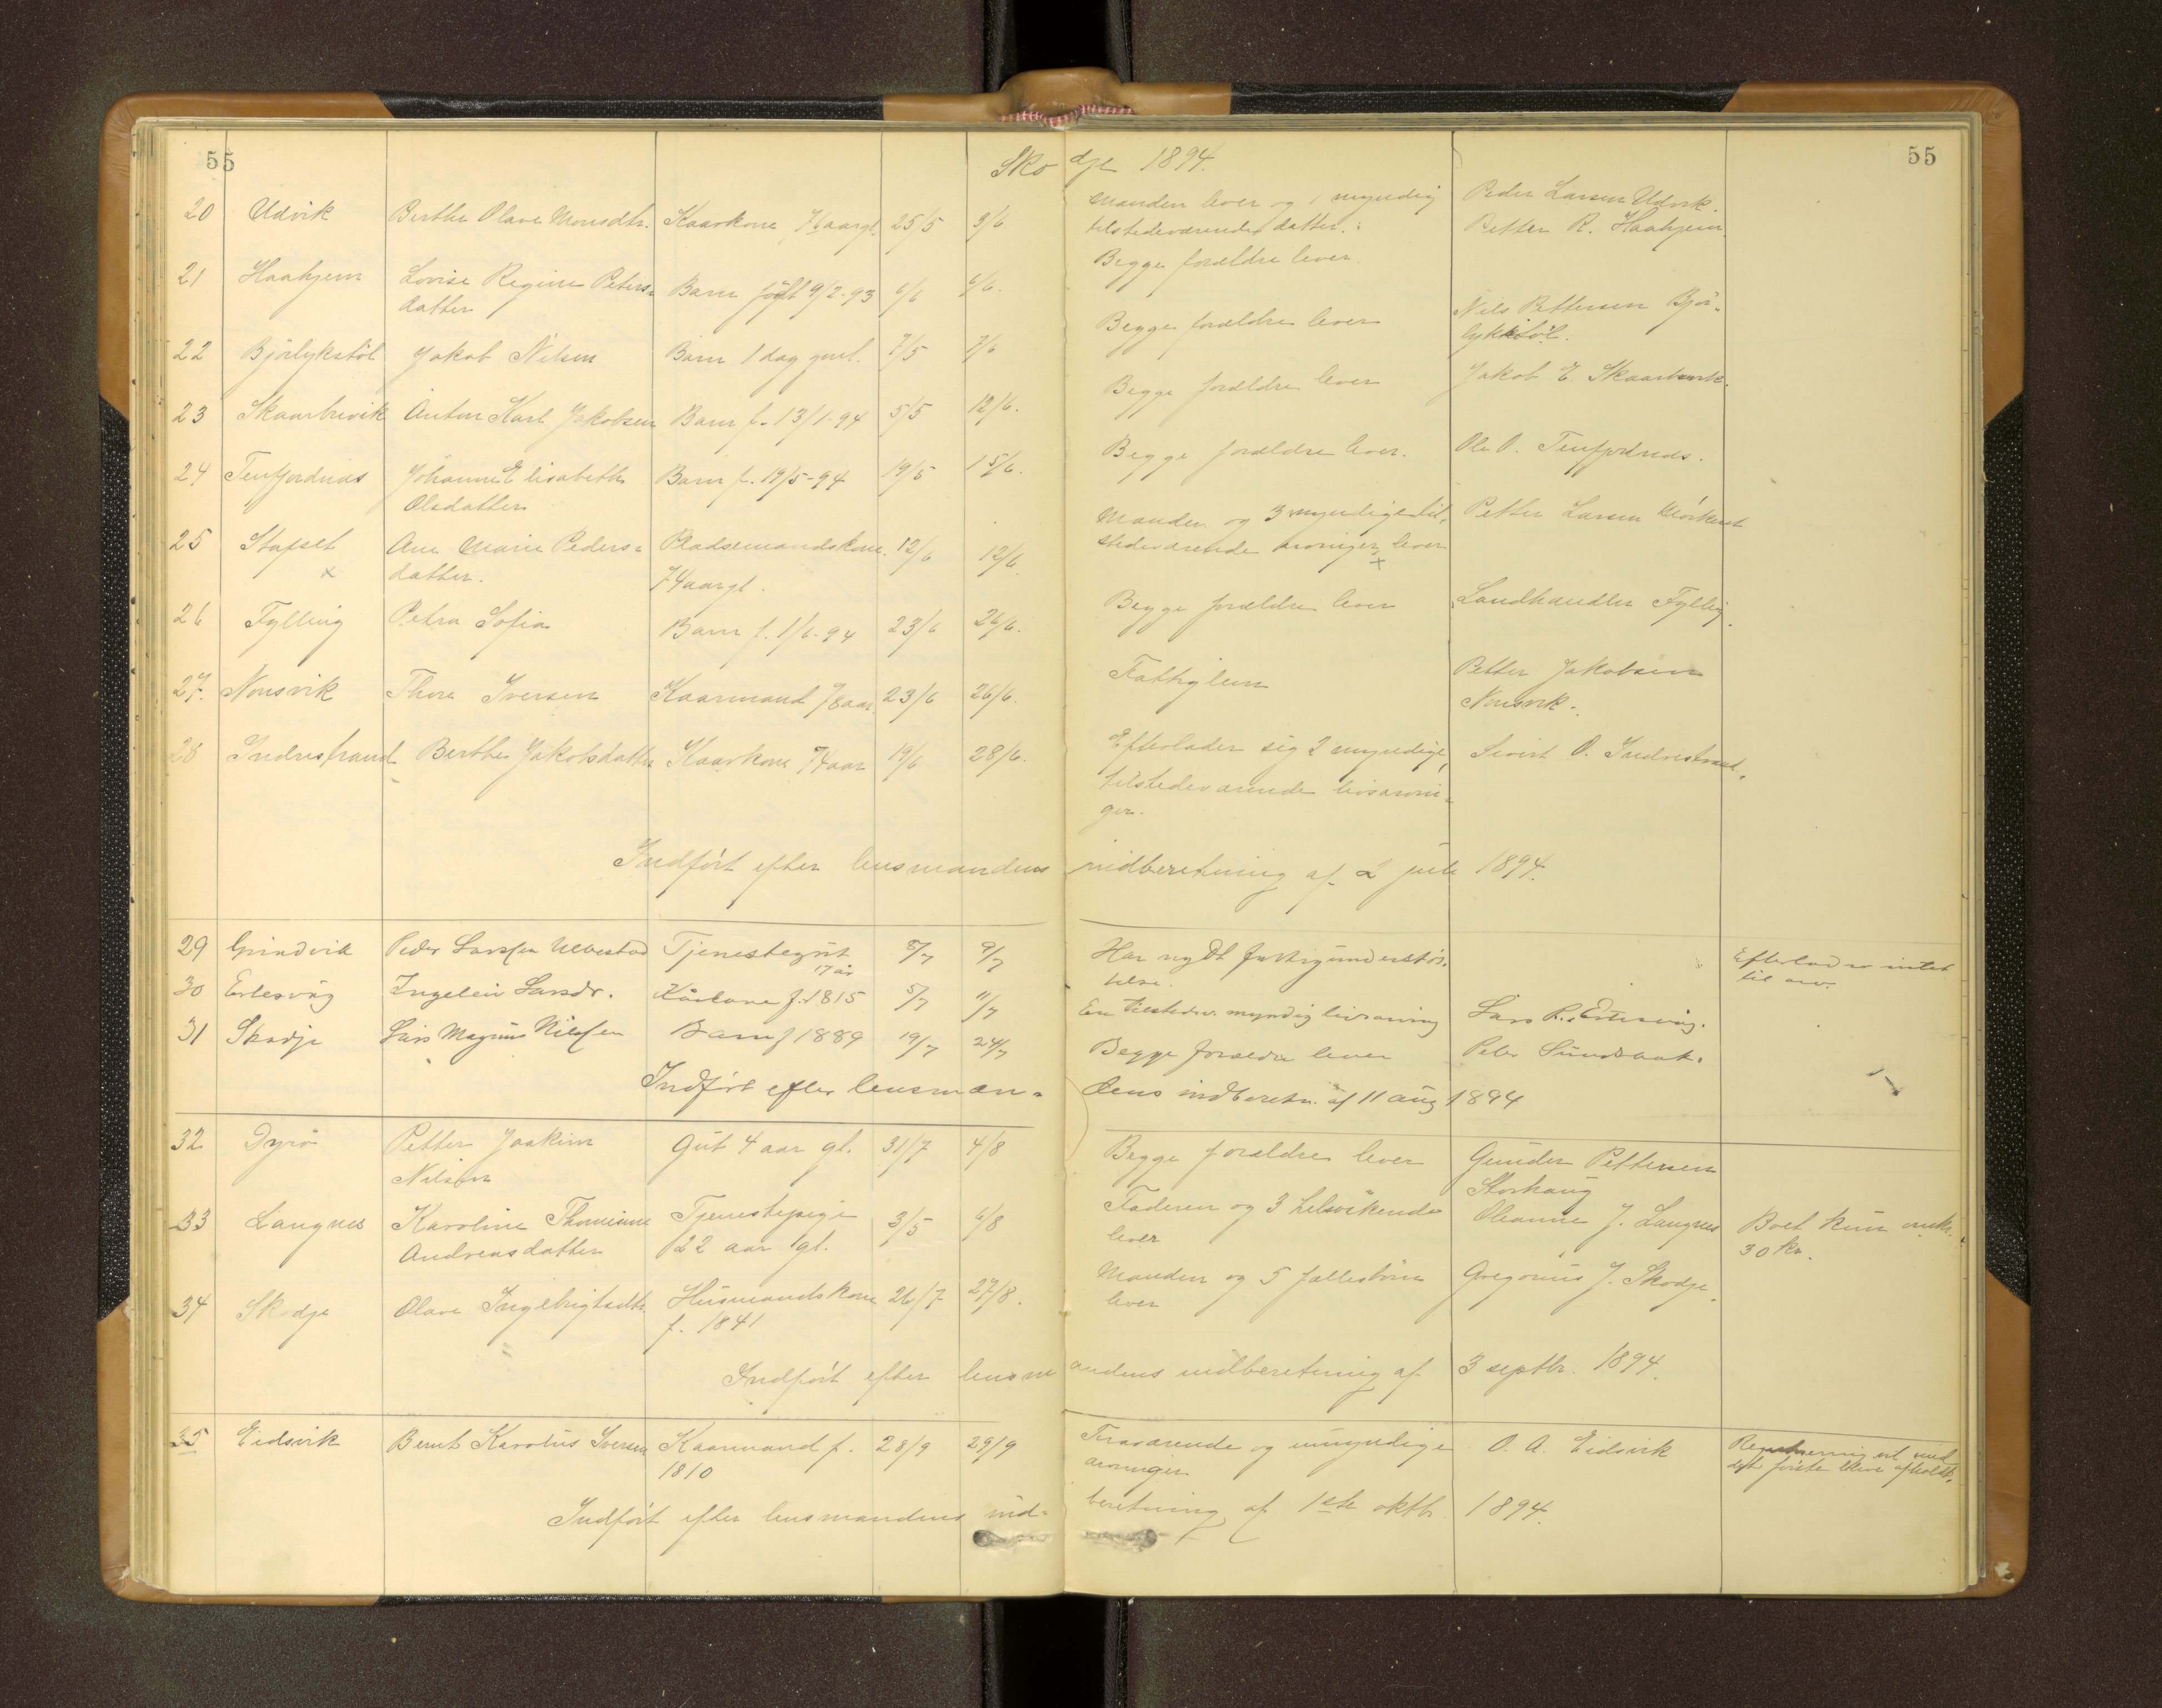 55
Skodje 1894.
55
20 Udvik Berthe Olave Monsdtr. Kaarkone 76 aargl. 25/5 3/6 Manden lever og 1 myndig Peder Larsen Udvik.
tilstedeværende datter. Petter R. Haahjem.
21 Haahjem Lovise Regine Peters- Barn født 9/2-93 6/6 6/6. Begge forældre lever.
datter
22 Björlykstöl Jakob Nilsen Barn 1 dag gml. 7/5 7/6 Begge forældre lever Nils Pettersen Björ-
lykstöl.
23 Skaarbrevik Anton Karl Jakobsen Barn f. 13/1-94 5/5 12/6. Begge forældre lever Jakob E. Skaarbrevik.
24 Tenfjordnæs Johanne Elisabeth Barn f. 19/5-94 19/5 15/6. Begge forældre lever. Ole O. Tenfjordnæs.
Olsdatter
25 Stafset Ane Marie Peders- Pladsemandskone 12/6 12/6. Manden og 3 myndige til- Petter Larsen
x datter. 74 aar gl. stedeværende arvinger lever
x
26 Fylling Petra Sofia Barn f. 1/6-94 23/6 26/6. Begge forældre lever Landhandler Fylling.
27. Nonsvik Thore Iversen Kaarmand 78 aar. 23/6 26/6. Fattiglem Petter Jakobsen
Nonsvik.
28 Indrestrand Berthe Jakobsdatter Kaarkone 74 aar 19/6 28/6. Efterlader sig 2 myndige, Sivert O. Indrestrand.
tilstedeværende livsarvin-
ger.
Indført efter lensmandens indberetning af 2 juli 1894.
29 Grindvik Peder Larssen Ulvestad Tjenestegut 8/7 9/7 Har nydt fattigunderstøt- Efterlader intet
17 år telse. til arv.
30 Erlesvåg Ingelein Larsdr. Kårkone f. 1815 5/7 11/7 En tilstedev. myndig livsarving Lars R. Erlesvåg.
31 Skodje Lars Magnus Nilssen Barn f 1889 19/7 24/7 Begge forældre lever Peter Sundsbak.
Indført efter lensman-dens indberetn. af 11 aug 1894
32 Dyrö Petter Joakim Gut 4 aar gl. 31/7 4/8 Begge forældre lever Gunder Pettersen
Nilsen Storhaug
33 Langnes Karoline Thomine Tjenestepige 3/5 6/8 Faderen og 3 helsøskende Oleanne J. Langnes Boet kun
Andreasdatter 22 aar gl. lever 30 kr.
34 Skodje Olave Ingebrigtsdtr. Husmandskone 26/7 27/8. Manden og 5 fællesbörn Gregorius J. Skodje.
f. 1841 lever
Indført efter lensmandens indberetning af 3 septbr. 1894.
35 Eidsvik Bernt Karolus Iversen Kaarmand f. 28/9 29/9 Fraværende og umyndige O. A. Eidsvik Registrering vil med
1810 arvinger det første blive afholdt.
Indført efter lensmandens ind-beretning af 1ste oktbr. 1894.